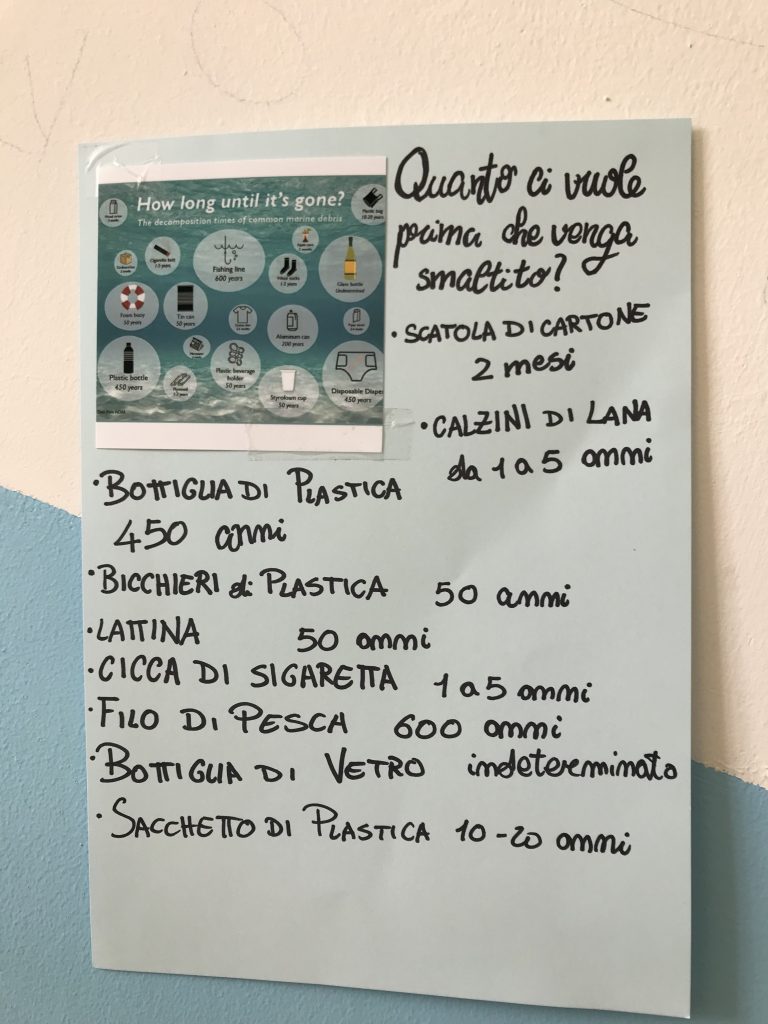 How long until it's gone?
The decomposition times of common marine debris
Plastic bag
10-20 years
Cigarette butt
1-5 years
Fishing line
600 years
Apple core
2 months
Glass bottle
Undetermined
Foam buoy
50 years
Tin can
50 years
Aluminum can
200 years
Plastic bottle
450 years
Plastic beverage
holder
50 years
Styrofoam cup
50 years
Disposable Diaper
450 years
Quanto ci vuole
prima che venga
smaltito?
• SCATOLA DI CARTONE
2 mesi
• CALZINI DI LANA
da 1 a 5 anni
• BOTTIGLIA DI PLASTICA
450 anni
• BICCHIERI di PLASTICA 50 anni
• LATTINA 50 anni
• CICCA DI SIGARETTA 1 a 5 anni
• FILO DI PESCA 600 anni
• BOTTIGLIA DI VETRO indeterminato
• SACCHETTO DI PLASTICA 10-20 anni